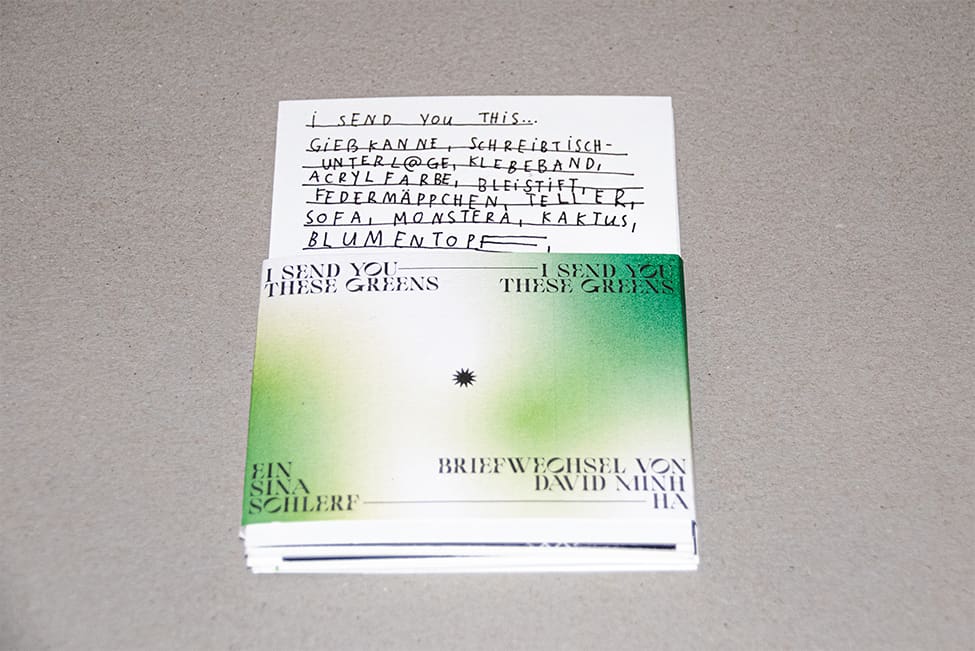 i SEND YOU THiS...
GiEßKANNE, SCHREiBTiSCH-
UNTERL@GE, KLEBEBAND,
ACRYLFARBE, BLEiSTiFT,
FEDERMÄPPCHEN, TELLER,
SOFA, MONSTERA, KAKTUS,
BLUMENTOPF,
I SEND YOU — I SEND YOU
THESE GREENS THESE GREENS
EIN
SINA
SCHLERF
BRIEFWECHSEL VON
DAVID MINH
HA